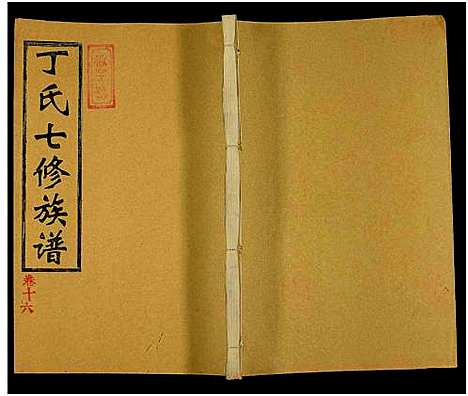 丁氏七修族谱
卷十六